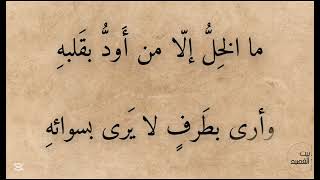 ما الخِلُّ إلّا من أَودُّ بقَلبهِ
وأرى بطَرفٍ لا يَرى بسوائهِ
بيت
القصيد